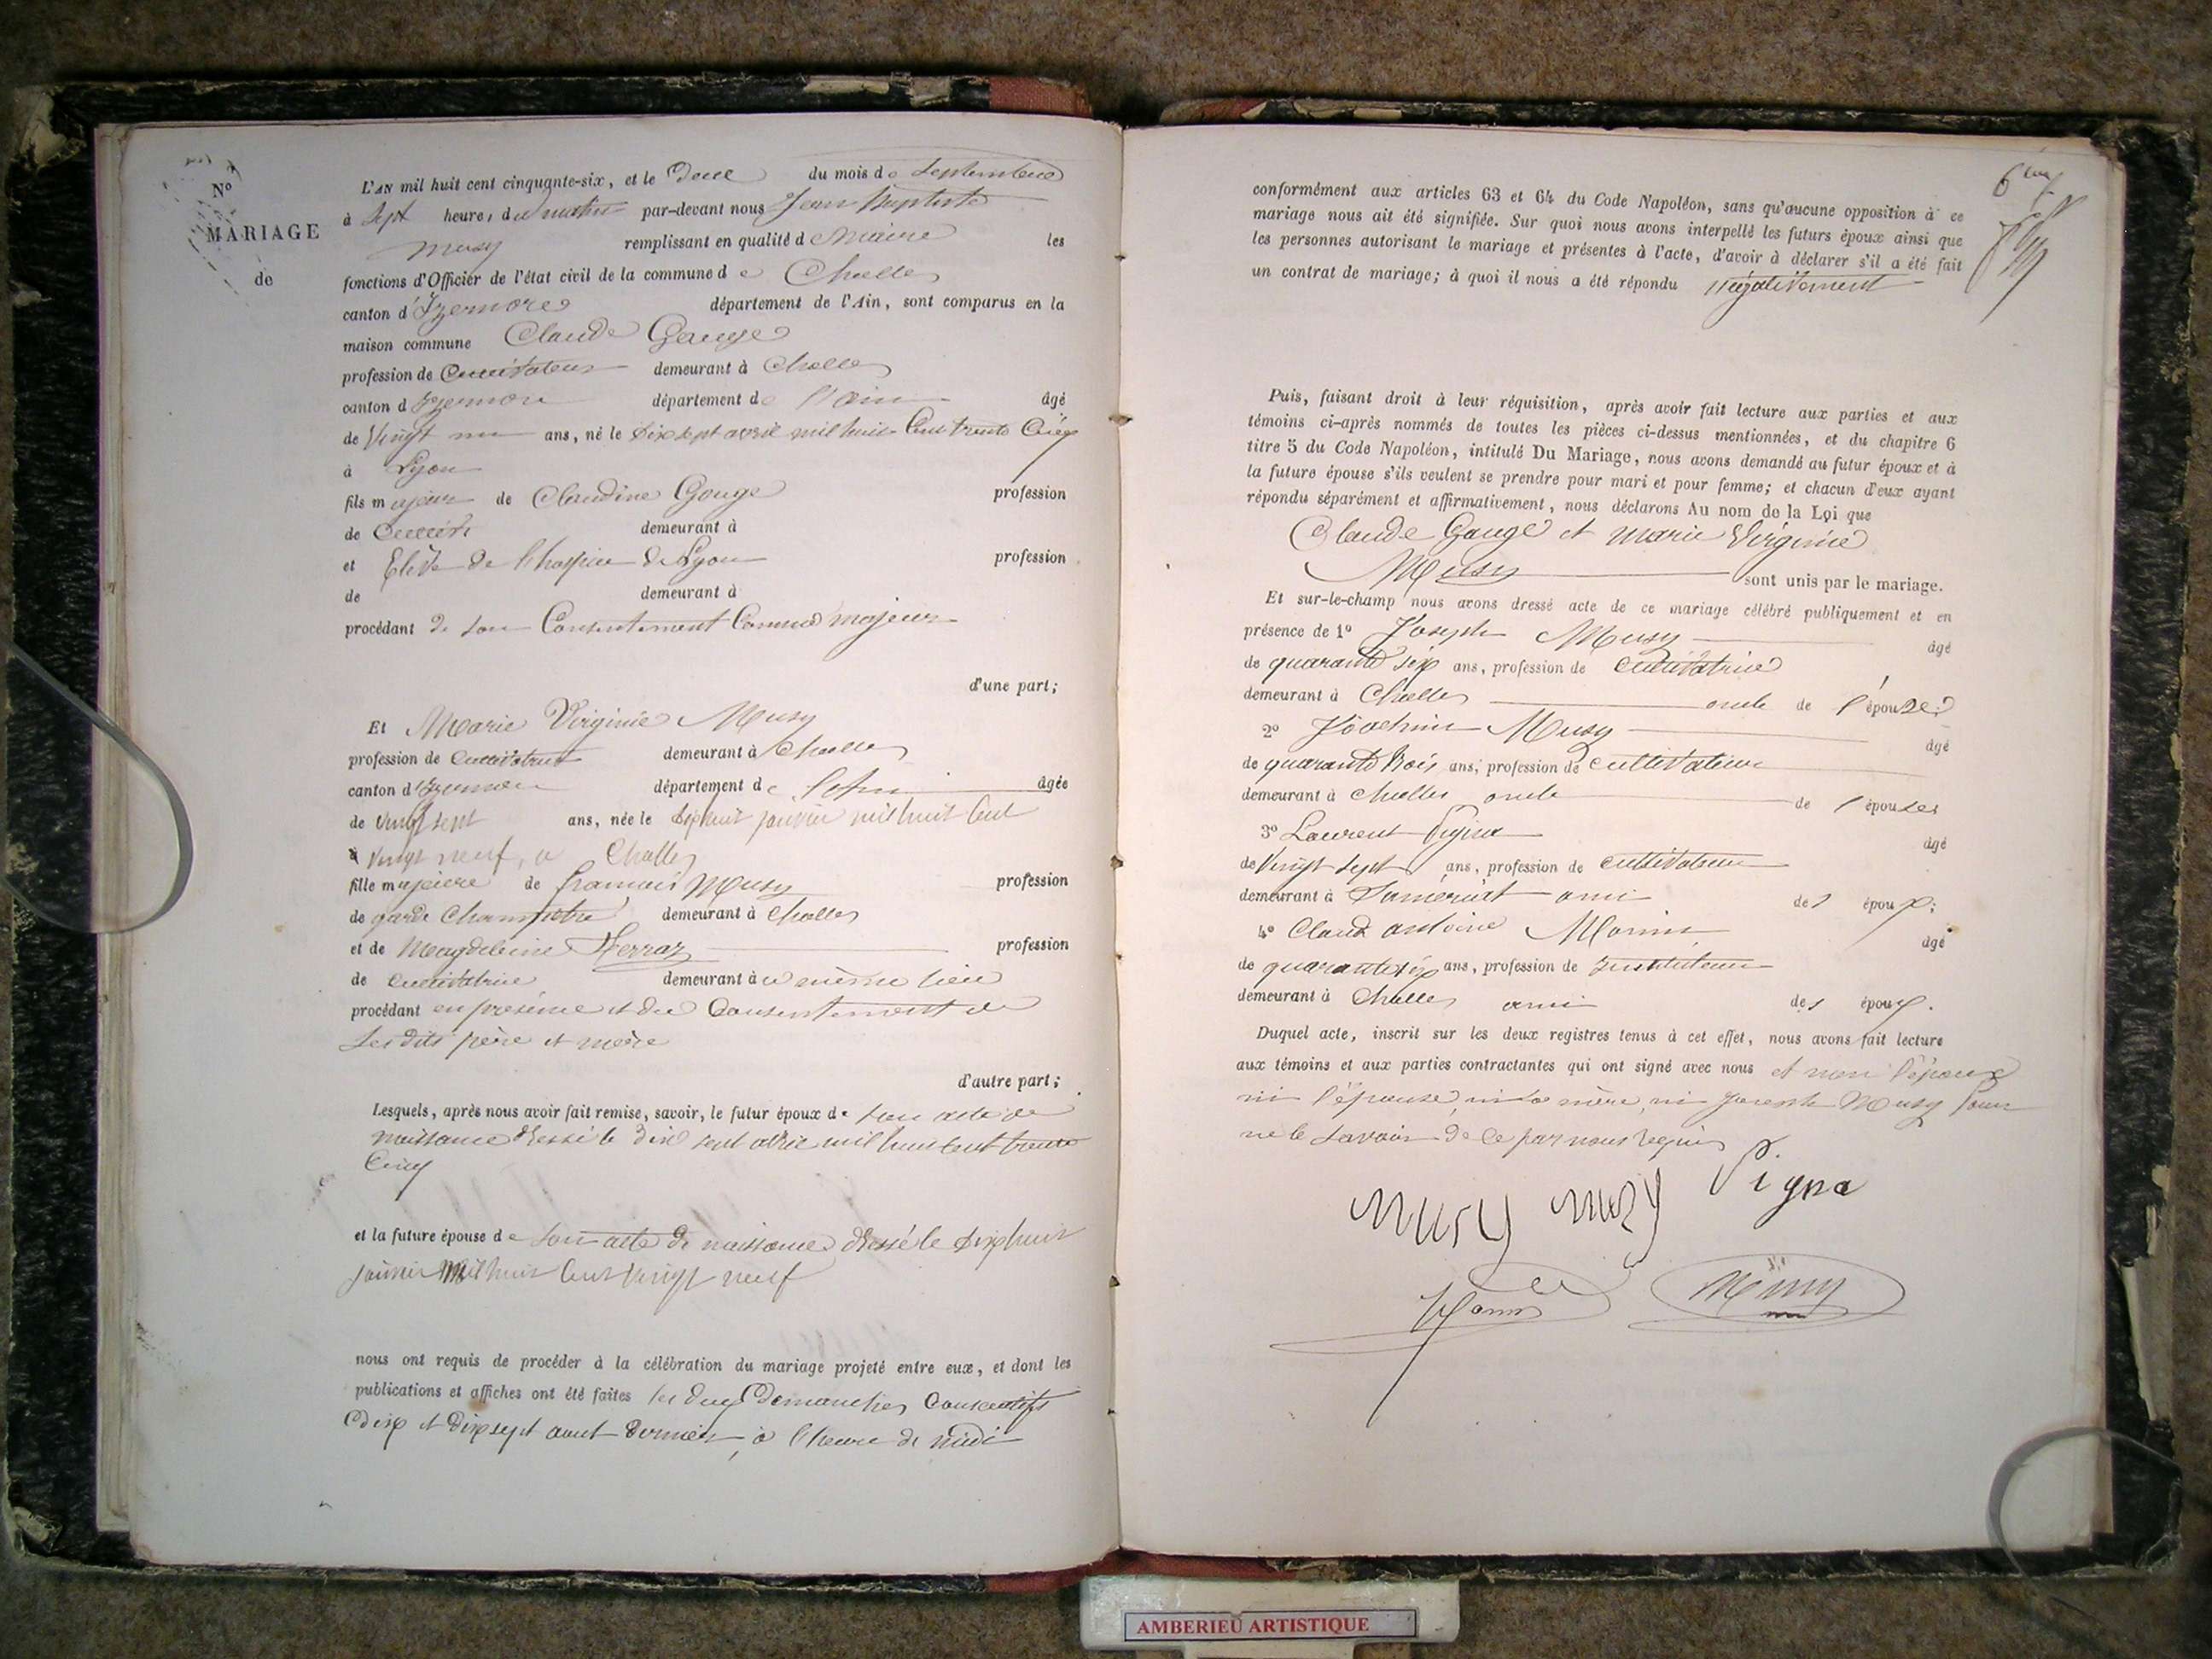 N°
MARIAGE
de
L'AN mil huit cent cinquante-six, et le Deux du mois de Septembre
à Sept heures du matin par-devant nous Jean Baptiste
Musy remplissant en qualité de Maire les
fonctions d'Officier de l'état civil de la commune de Challes
canton d'Izernore département de l'Ain, sont comparus en la
maison commune Claude Gouge
profession de Cultivateur demeurant à Challes
canton d'Izernore département de l'Ain âgé
de Vingt un ans, né le Dix sept avril mil huit Cent trente Cinq
à Lyon
fils majeur de Claudine Gouge profession
de demeurant à
et Elève de l'hospice de Lyon profession
de demeurant à
procédant de son Consentement Comme majeur
d'une part;
Et Marie Virginie Musy
profession de Cultivatrice demeurant à Challes
canton d'Izernore département de l'Ain âgée
de vingt sept ans, née le Dix huit janvier mil huit Cent
à vingt neuf, à Challes
fille majeure de François Musy profession
de garde Champêtre demeurant à Challes
et de Magdeleine Ferraz profession
de Cultivatrice demeurant à u même lieu
procédant en présence et du Consentement de
Ses dits père et mère
d'autre part;
Lesquels, après nous avoir fait remise, savoir, le futur époux de son acte de
naissance dressé le Dix sept avril mil huit Cent trente
Cinq
et la future épouse de son acte de naissance dressé le Dix huit
janvier Mil huit Cent vingt neuf
nous ont requis de procéder à la célébration du mariage projeté entre eux, et dont les
publications et affiches ont été faites les deux Dimanches Consécutifs
Dix et Dix sept aout Dernier, à l'heure de midi
conformément aux articles 63 et 64 du Code Napoléon, sans qu'aucune opposition à ce
mariage nous ait été signifiée. Sur quoi nous avons interpellé les futurs époux ainsi que
les personnes autorisant le mariage et présentes à l'acte, d'avoir à déclarer s'il a été fait
un contrat de mariage; à quoi il nous a été répondu négativement
Puis, faisant droit à leur réquisition, après avoir fait lecture aux parties et aux
témoins ci-après nommés de toutes les pièces ci-dessus mentionnées, et du chapitre 6
titre 5 du Code Napoléon, intitulé Du Mariage, nous avons demandé au futur époux et à
la future épouse s'ils veulent se prendre pour mari et pour femme; et chacun d'eux ayant
répondu séparément et affirmativement, nous déclarons Au nom de la Loi que
Claude Gouge et Marie Virginie
Musy sont unis par le mariage.
Et sur-le-champ nous avons dressé acte de ce mariage célébré publiquement et en
présence de 1° Joseph Musy âgé
de quarante six ans, profession de Cultivatrice
demeurant à Challes oncle de l'épouse;
2° Joachim Musy âgé
de quarante trois ans, profession de Cultivateur
demeurant à Challes oncle de l'épouse;
3° Laurent Vigna âgé
de Vingt sept ans, profession de Cultivateur
demeurant à Samériat ami des époux;
4° Claude antoine Monin âgé
de quarante six ans, profession de Instituteur
demeurant à Challes ami des époux.
Duquel acte, inscrit sur les deux registres tenus à cet effet, nous avons fait lecture
aux témoins et aux parties contractantes qui ont signé avec nous et non l'époux
ni l'épouse, ni la mère, ni Joseph Musy pour
ne le savoir de ce par nous requis
musy muzy Vigna
Monin Musy
AMBERIEU ARTISTIQUE